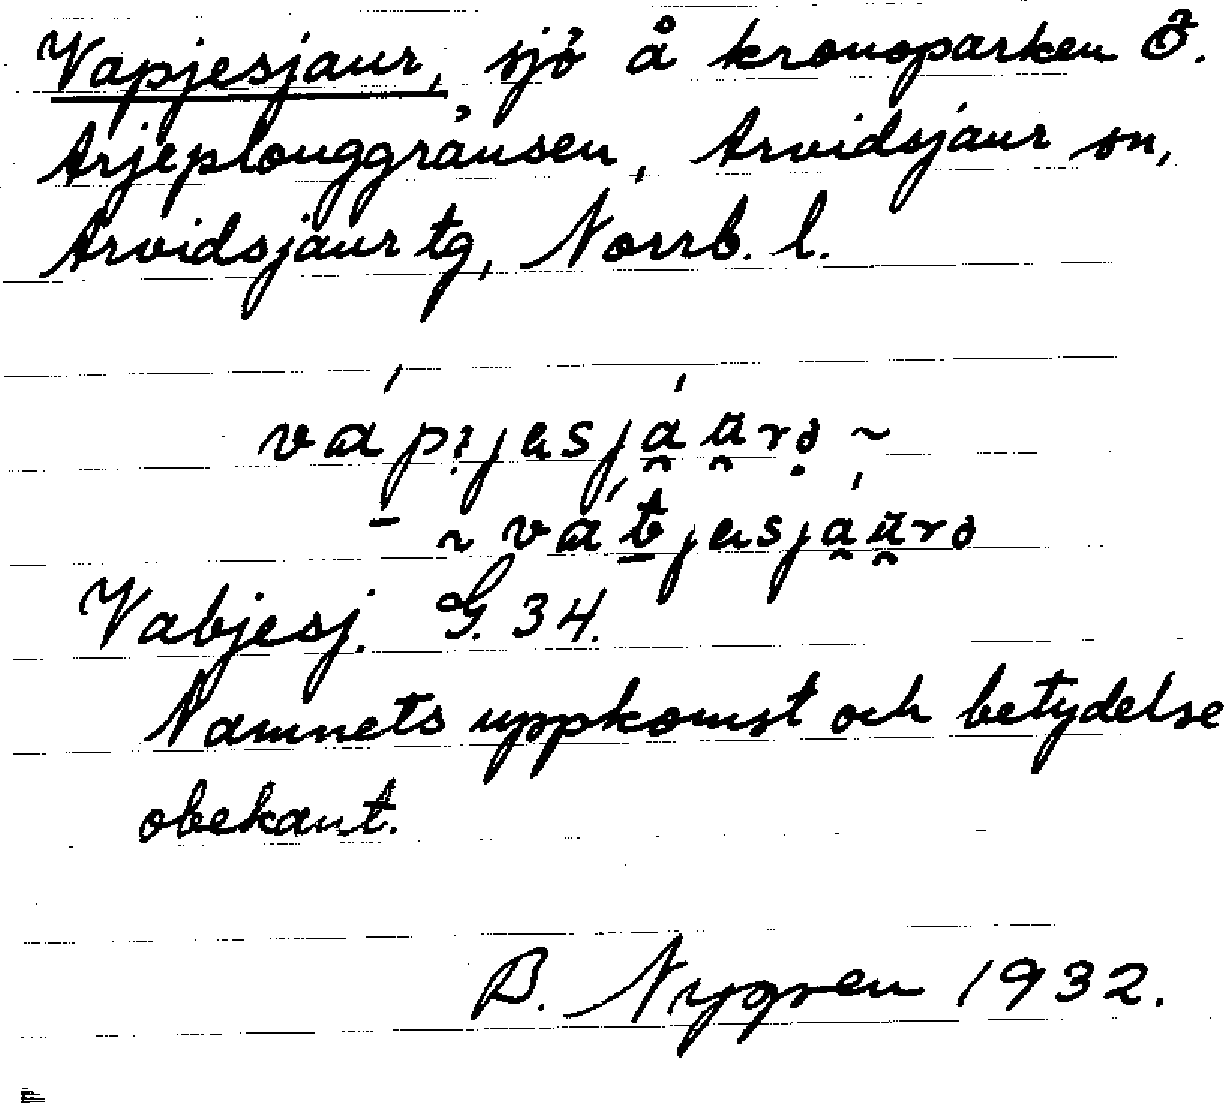 Vapjesjaur, sjö å kronoparken Ö.
Arjeplouggränsen, Arvidsjaur sn,
Arvidsjaur tg, Norrb. l.
Vabjesj. G. 34.
Namnets uppkomst och betydelse
obekant.
B. Nygren 1932.